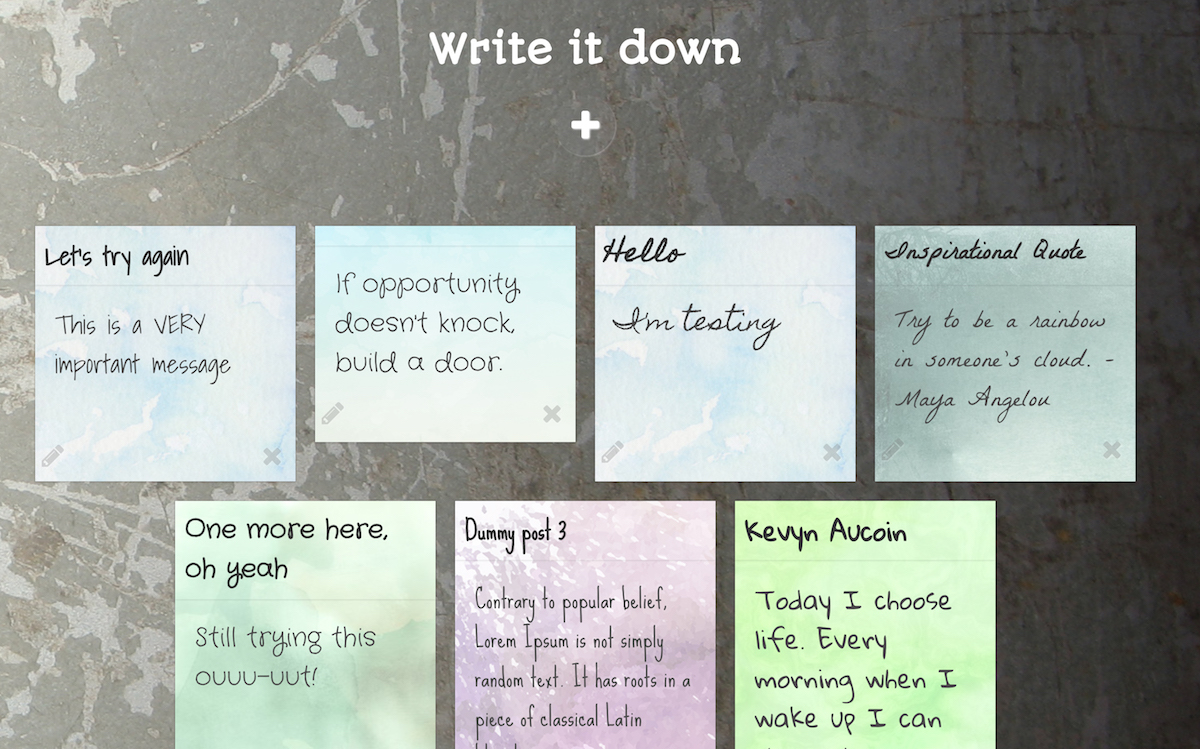 Write it down
Let's try again
This is a VERY
important message
If opportunity
doesn't knock,
build a door.
Hello
I'm testing
Inspirational Quote
Try to be a rainbow
in someone's cloud. -
Maya Angelou
One more here,
oh yeah
Still trying this
ouuu-uut!
Dummy post 3
Contrary to popular belief,
Lorem Ipsum is not simply
random text. It has roots in a
piece of classical Latin
Kevyn Aucoin
Today I choose
life. Every
morning when I
wake up I can